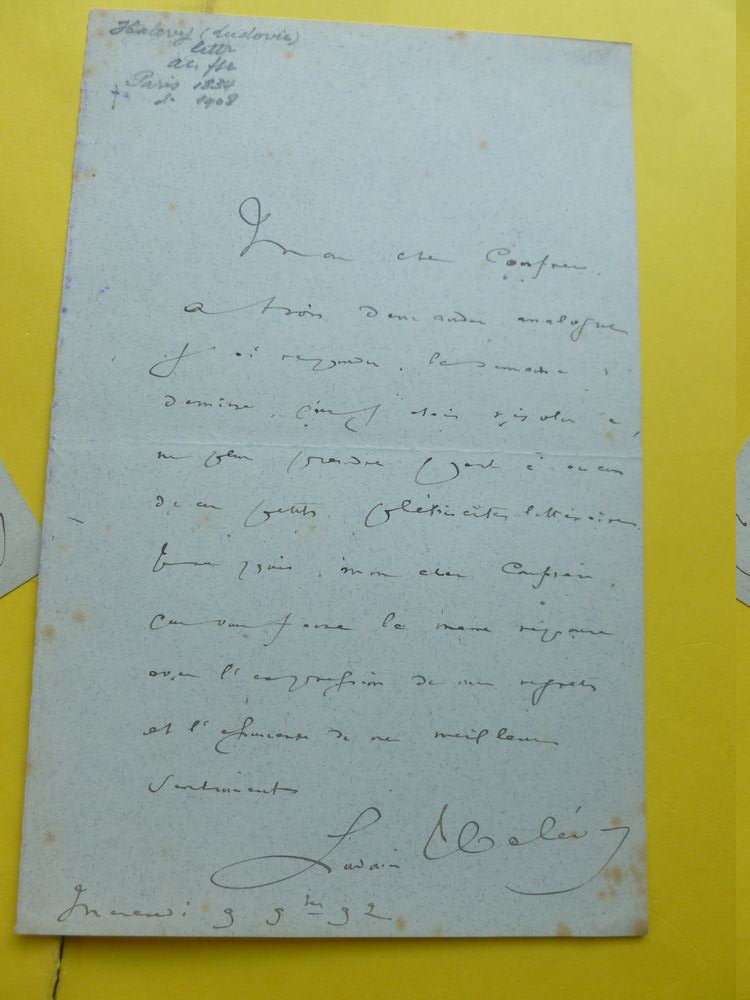 Halevy (Ludovic)
littr
ac. fse
Paris 1834
† do 1908
Mon cher Confrère,
A trois demandes analogues
j'ai répondu, la semaine
dernière, que j'étais résolu à
ne plus prendre part à aucun
de ces petits plébiscites littéraires.
Je ne puis, mon cher Confrère,
que vous faire la même réponse
avec l'expression de mes regrets
et l'assurance de mes meilleurs
sentiments
Ludovic Halévy
Mercredi 9 9bre 92